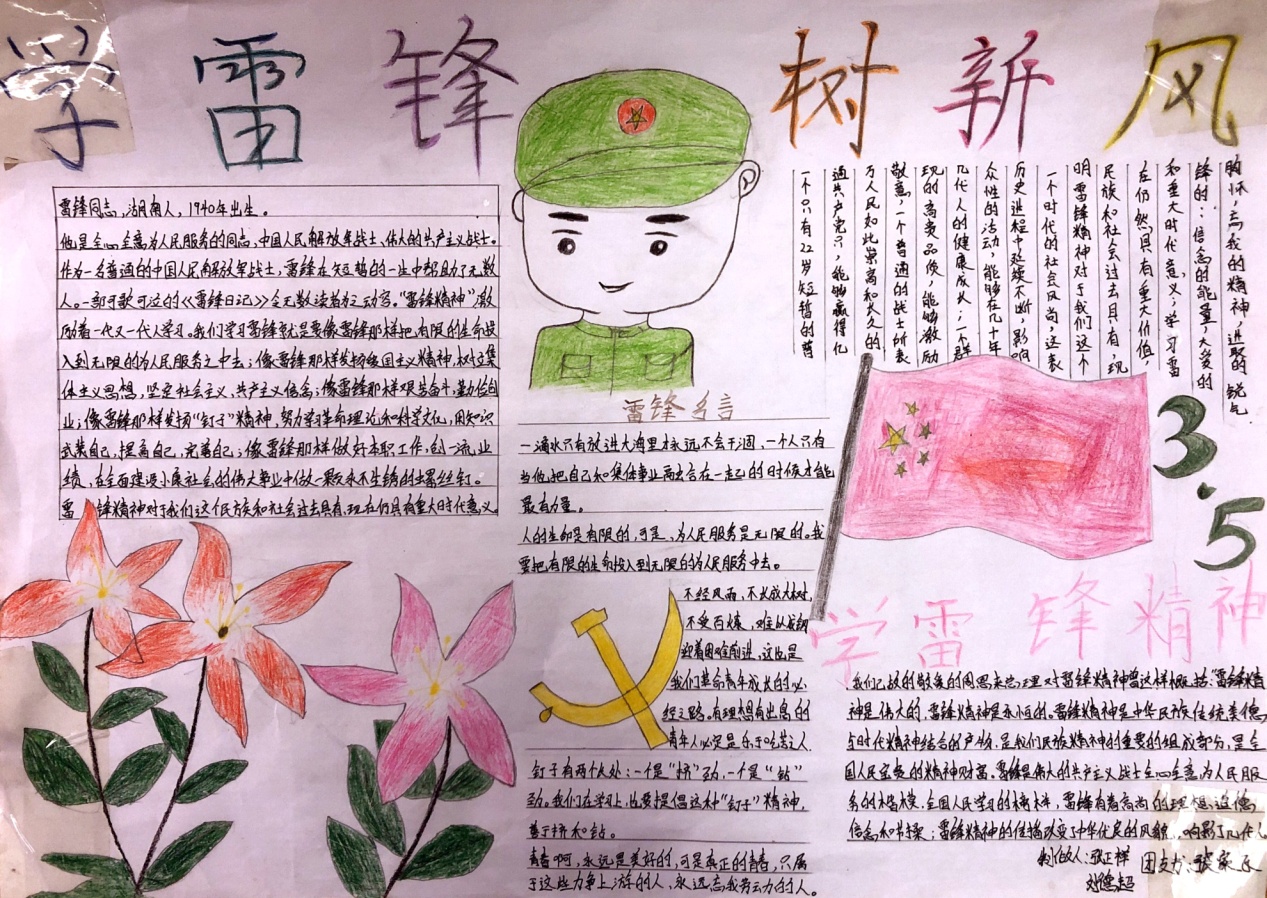 学雷锋 树新风
雷锋同志，湖南人，1940年出生。
他是全心全意为人民服务的同志，中国人民解放军战士，伟大的共产主义战士。
作为一名普通的中国人民解放军战士，雷锋在短暂的一生中帮助了无数
人。一部可歌可泣的《雷锋日记》令无数读者为之动容。“雷锋精神”激
励着一代又一代人学习。我们学习雷锋就是要像雷锋那样把有限的生命投
入到无限的为人民服务之中去；像雷锋那样发扬爱国主义精神，树立集
体主义思想，坚定社会主义、共产主义信念；像雷锋那样艰苦奋斗，勤俭创
业；像雷锋那样发扬“钉子”精神，努力学习革命理论和科学文化，用知识
武装自己，提高自己，完善自己；像雷锋那样做好本职工作，创一流业
绩，在全面建设小康社会的伟大事业中做一颗永不生锈的螺丝钉。
雷锋精神对于我们这个民族和社会过去具有，现在仍具有重大时代意义。
雷锋名言
一滴水只有放进大海里永远不会干涸，一个人只有
当他把自己和集体事业融合在一起的时候才能
最有力量。
人的生命是有限的，可是，为人民服务是无限的。我
要把有限的生命投入到无限的为人民服务中去。
不经风雨，不长成大树，
不受百炼，难以成钢
迎着困难前进，这也是
我们革命青年成长的必
经之路。有理想有出息的
青年人必定是乐于吃苦之人
钉子有两个长处：一个是“挤”劲，一个是“钻”
劲。我们在学习上，也要提倡这种“钉子”精神，
善于挤和钻。
青春啊，永远是美好的，可是真正的青春，只属
于这些力争上游的人，永远忘我劳动的人。
胸怀，忘我的精神，进取的锐气
锋的：信念的能量，大爱的
和重大时代意义；学习雷
在仍然具有重大价值，
民族和社会过去具有，现
明雷锋精神对于我们这个
一个时代的社会风尚，这表
历史进程中延续不断，影响
众性的活动，能够在几十年
几代人的健康成长；一个群
现的高贵品质，能够激励
敬意，一个普通的战士所表
万人民如此崇高和长久的
通共产党员，能够赢得亿
一个只有22岁短暂的普
3.5
学雷锋精神
我们已故的敬爱的周恩来总理对雷锋精神曾这样概括：“雷锋精
神是伟大的，雷锋精神是永恒的。雷锋精神是中华民族传统美德
与时代精神结合的产物，是我们民族精神的重要的组成部分，是全
国人民宝贵的精神财富。雷锋是伟大的共产主义战士全心全意为人民服
务的楷模，全国人民学习的榜样，雷锋有着高尚的理想道德
信念和节操；雷锋精神的传播改变了中华优良的风貌，响影了几代人
制作人：张正祥
刘德超
团支力：张家